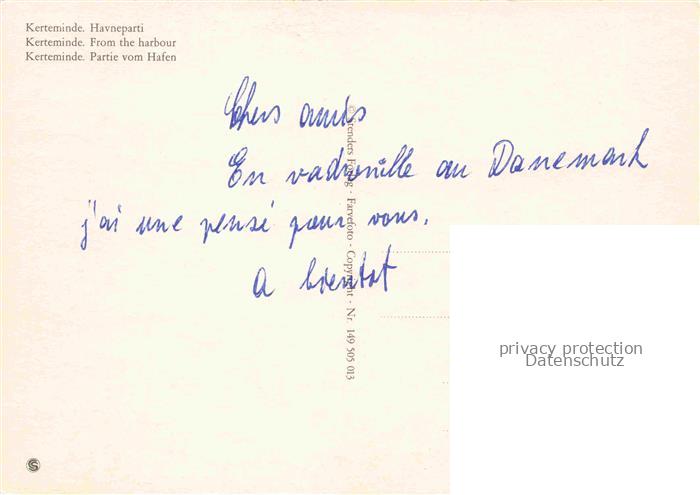 Kerteminde. Havneparti
Kerteminde. From the harbour
Kerteminde. Partie vom Hafen
Chers amis
En vadrouille au Danemark
j'ai une pensé pour vous.
A bientot
Grønlunds Forlag - Farvefoto - Copyright - Nr. 149 505 013
privacy protection
Datenschutz